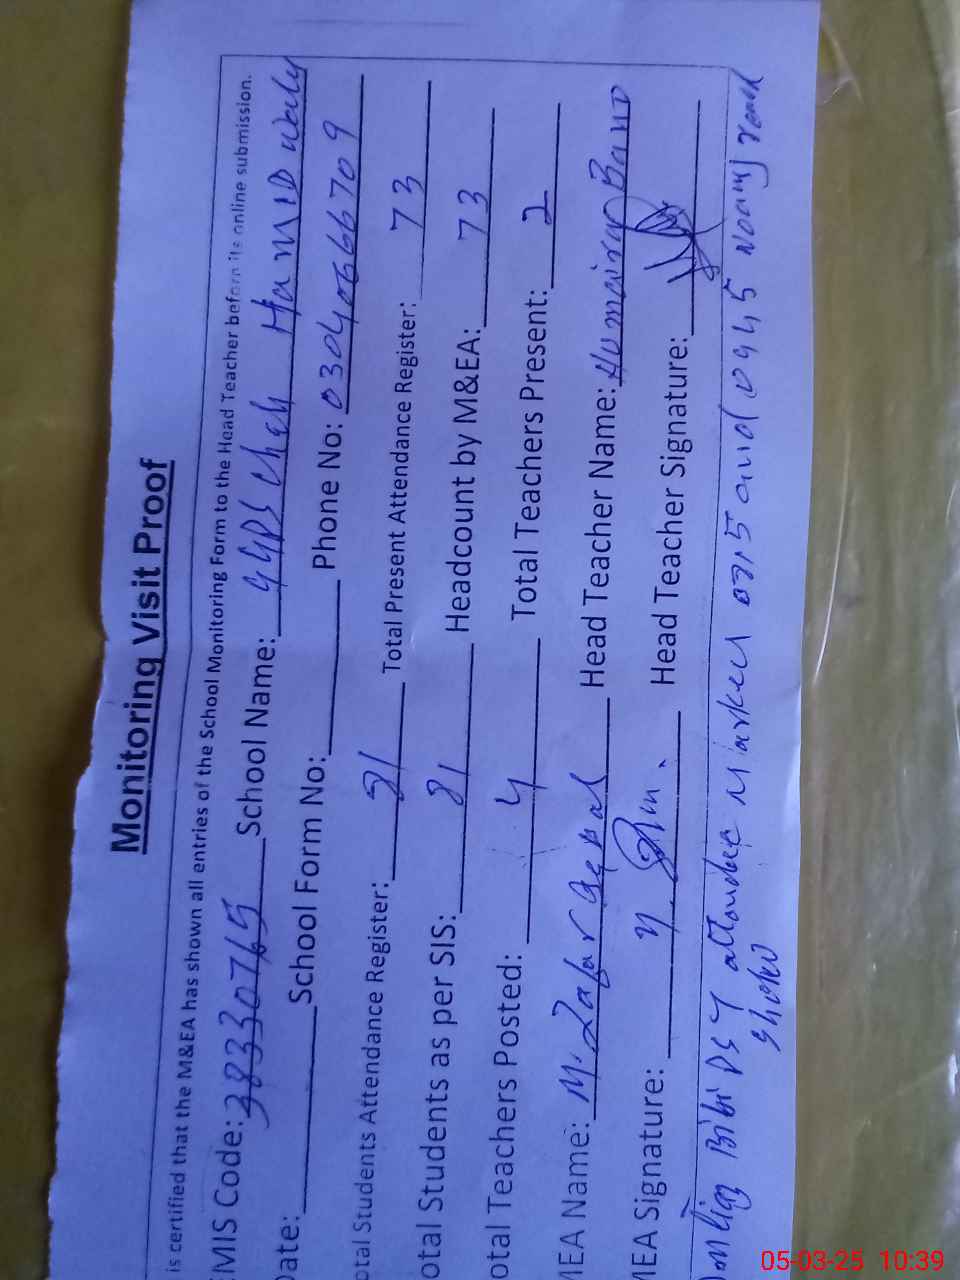 Monitoring Visit Proof
is certified that the M&EA has shown all entries of the School Monitoring Form to the Head Teacher before its online submission.
EMIS Code: 38330765 School Name: GGPS Chah Hamid wala
Date: School Form No: Phone No: 03040666709
otal Students Attendance Register: 81 Total Present Attendance Register: 73
otal Students as per SIS: 81 Headcount by M&EA: 73
otal Teachers Posted: 4 Total Teachers Present: 2
MEA Name: M. Zafar Head Teacher Name: Humaira Bano
MEA Signature: Head Teacher Signature:
Bibi attendance Marked 0715 and 0945
05-03-25 10:39